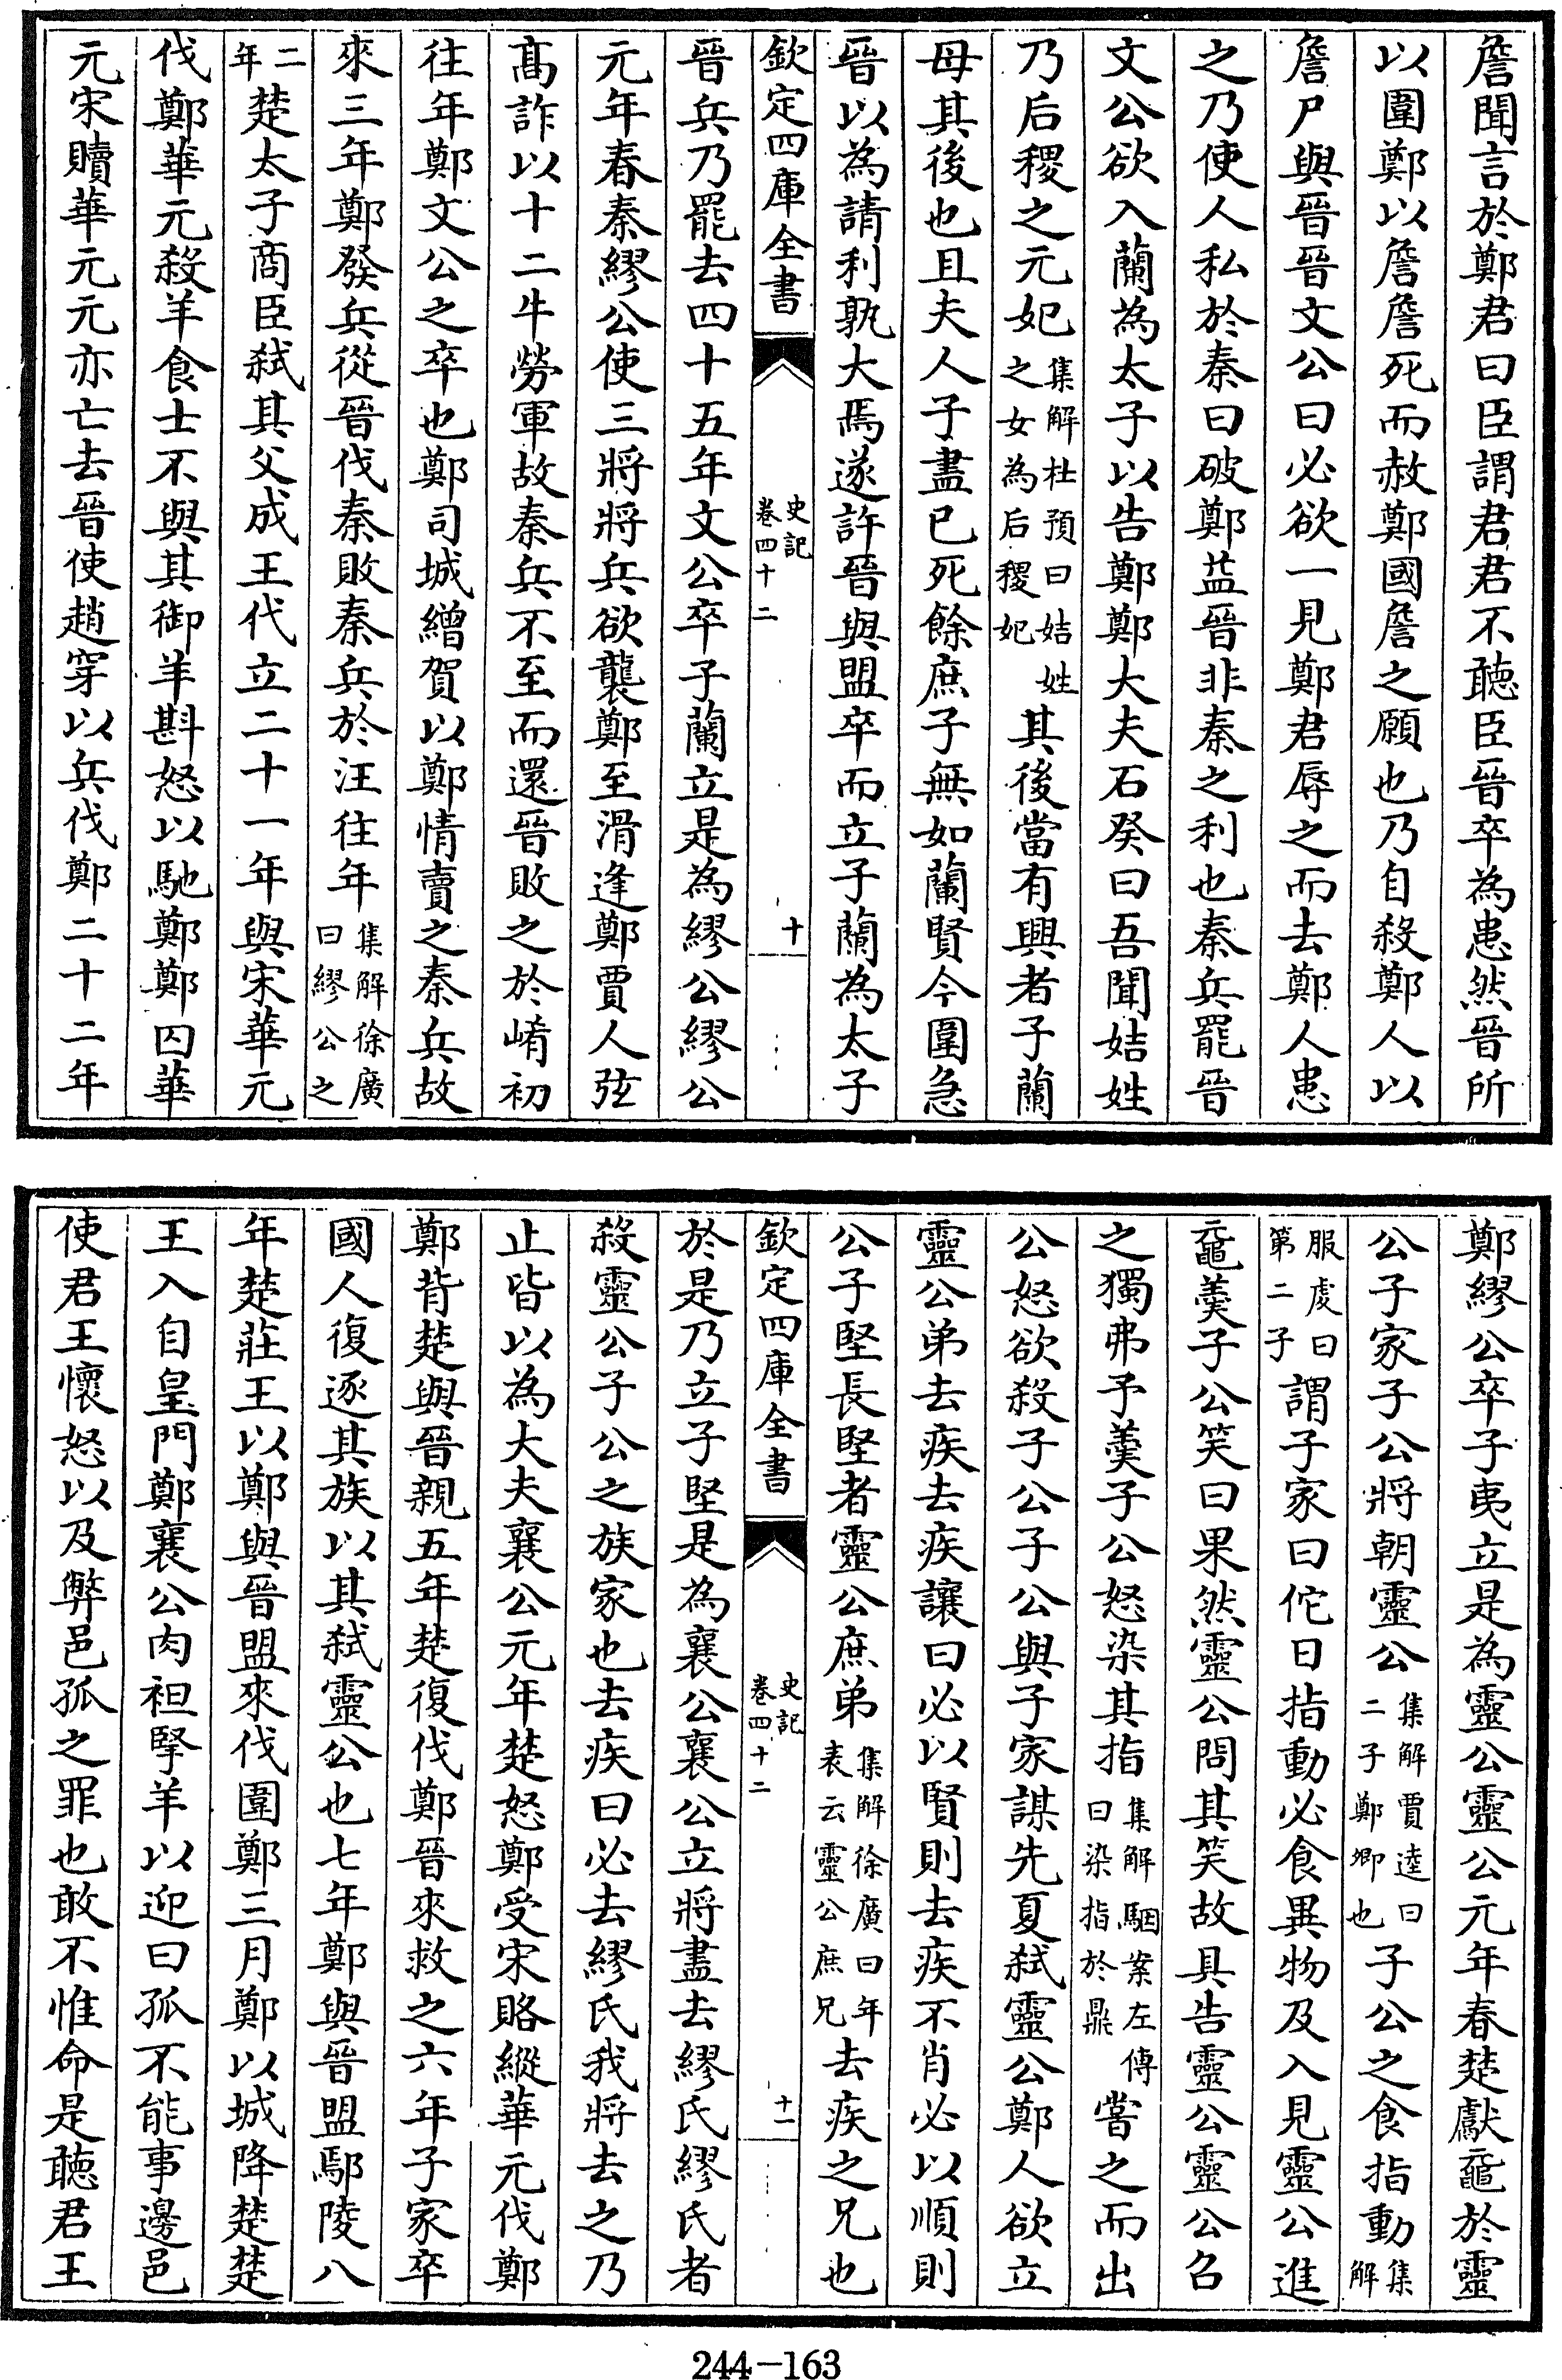 詹聞言於鄭君曰臣謂君君不聽臣晉卒為患然晉所
以圍鄭以詹詹死而赦鄭國詹之願也乃自殺鄭人以
詹尸與晉晉文公曰必欲一見鄭君辱之而去鄭人患
之乃使人私於秦曰破鄭益晉非秦之利也秦兵罷晉
文公欲入蘭為太子以告鄭鄭大夫石癸曰吾聞姞姓
乃后稷之元妃集解杜預曰姞姓之女為后稷妃其後當有興者子蘭
母其後也且夫人子盡已死餘庶子無如蘭賢今圍急
晉以為請利孰大焉遂許晉與盟卒而立子蘭為太子
欽定四庫全書 史記卷四十二 十
晉兵乃罷去四十五年文公卒子蘭立是為繆公繆公
元年春秦繆公使三將將兵欲襲鄭至滑逢鄭賈人弦
高詐以十二牛勞軍故秦兵不至而還晉敗之於崤初
往年鄭文公之卒也鄭司城繒賀以鄭情賣之秦兵故
來三年鄭發兵從晉伐秦敗秦兵於汪往年集解徐廣曰繆公之
二年楚太子商臣弒其父成王代立二十一年與宋華元
伐鄭華元殺羊食士不與其御羊斟怒以馳鄭鄭囚華
元宋贖華元元亦亡去晉使趙穿以兵伐鄭二十二年
鄭繆公卒子夷立是為靈公靈公元年春楚獻黿於靈
公子家子公將朝靈公集解賈逵曰二子鄭卿也子公之食指動集解
服虔曰第二子謂子家曰佗日指動必食異物及入見靈公進
黿羹子公笑曰果然靈公問其笑故具告靈公靈公召
之獨弗予羹子公怒染其指集解駰案左傳曰染指於鼎嘗之而出
公怒欲殺子公子公與子家謀先夏弒靈公鄭人欲立
靈公弟去疾去疾讓曰必以賢則去疾不肖必以順則
公子堅長堅者靈公庶弟集解徐廣曰年表云靈公庶兄去疾之兄也
欽定四庫全書 史記卷四十二 十一
於是乃立子堅是為襄公襄公立將盡去繆氏繆氏者
殺靈公子公之族家也去疾曰必去繆氏我將去之乃
止皆以為大夫襄公元年楚怒鄭受宋賂縱華元伐鄭
鄭背楚與晉親五年楚復伐鄭晉來救之六年子家卒
國人復逐其族以其弒靈公也七年鄭與晉盟鄢陵八
年楚莊王以鄭與晉盟來伐圍鄭三月鄭以城降楚楚
王入自皇門鄭襄公肉袒掔羊以迎曰孤不能事邊邑
使君王懷怒以及弊邑孤之罪也敢不惟命是聽君王
244-163